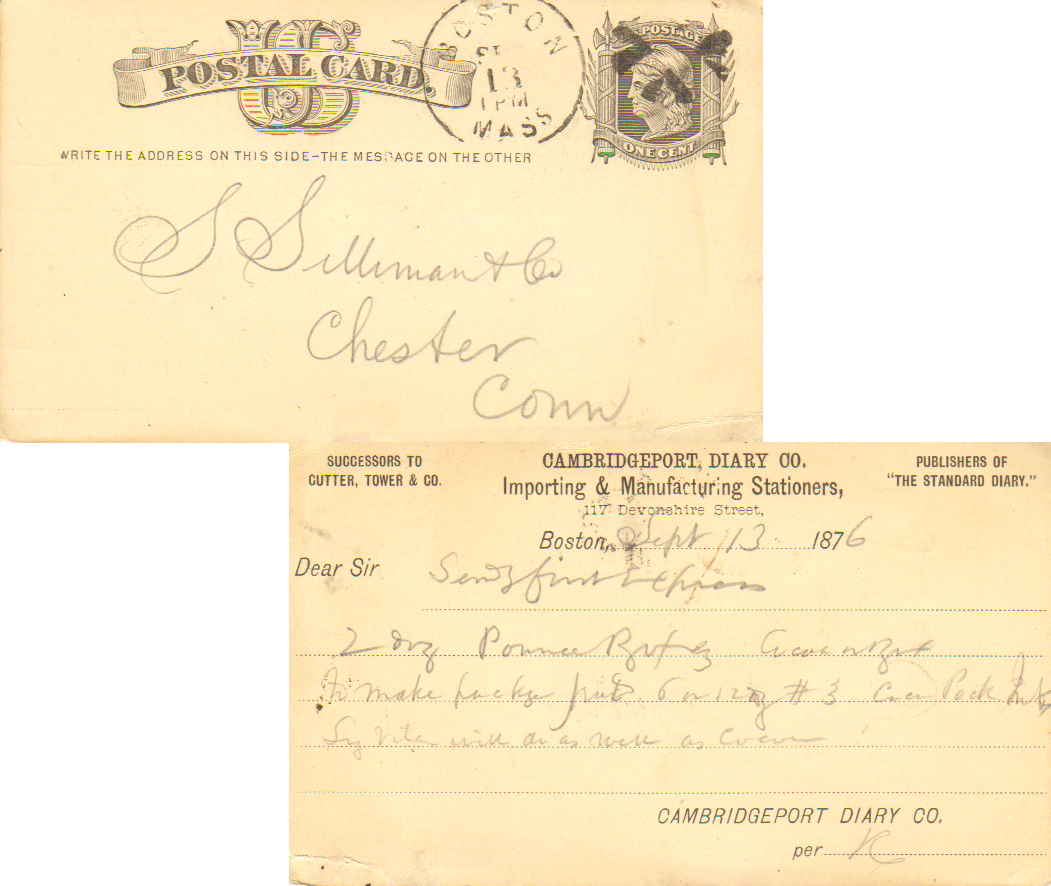 US
POSTAL CARD.
WRITE THE ADDRESS ON THIS SIDE—THE MESSAGE ON THE OTHER
BOSTON
13
1 PM
MASS
POSTAGE
ONE CENT
S Silliman & Co
Chester
Conn
SUCCESSORS TO
CUTTER, TOWER & CO.
CAMBRIDGEPORT, DIARY CO.
Importing & Manufacturing Stationers,
117 Devonshire Street,
PUBLISHERS OF
"THE STANDARD DIARY."
Boston, Sept 13 1876
Dear Sir Send first Express
2 doz Pounce Boxes
to make package 6 or 12 #3 Pock Inks
will do as well as Cocoa
CAMBRIDGEPORT DIARY CO.
per K